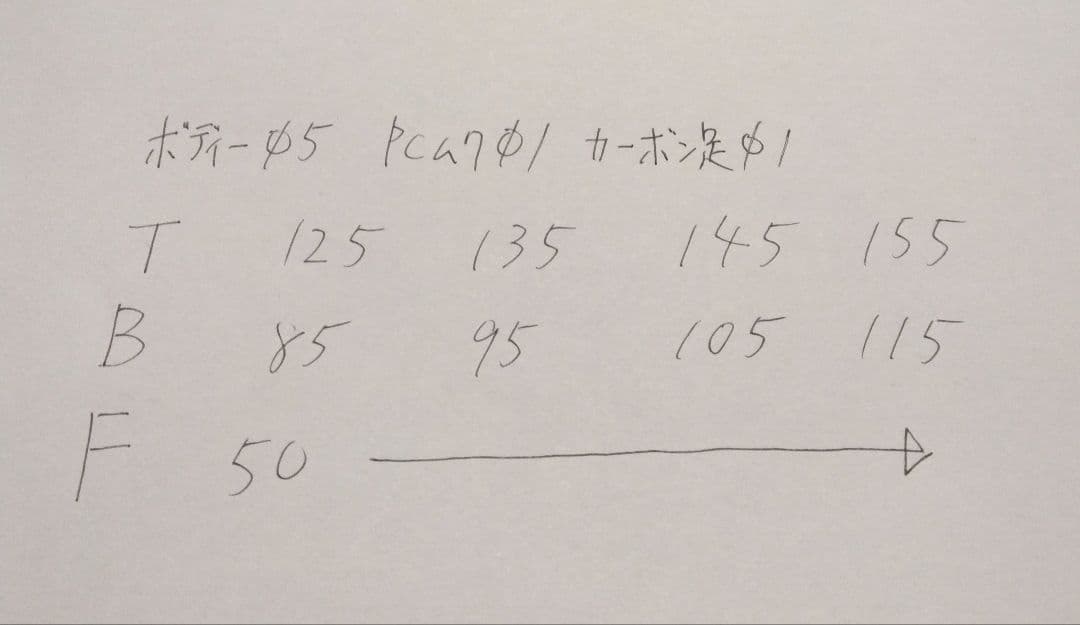 ボディーφ5 PCムクφ1 カーボン足φ1
T 125 135 145 155
B 85 95 105 115
F 50 →